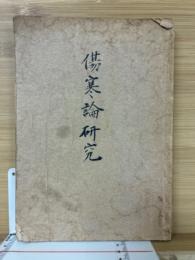 傷寒論研究